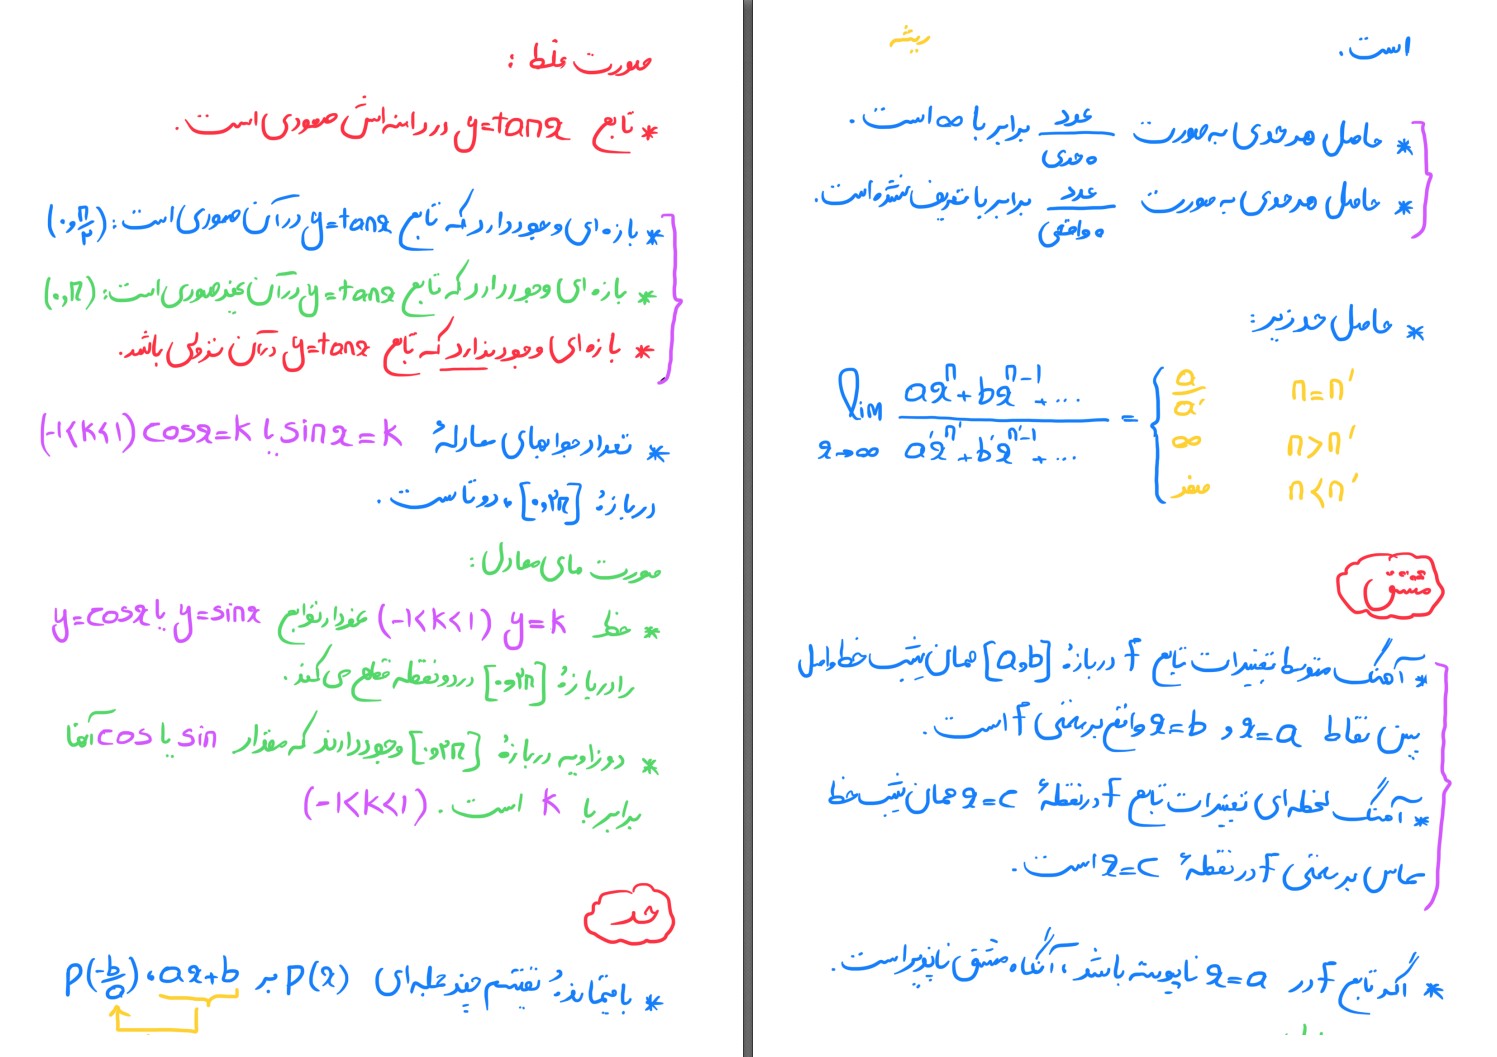 صورت غلط :
* تابع y=tanx در دامنه اش صعودی است.
* بازه ای وجود دارد که تابع y=tanx در آن صعودی است: (۰,π/۲)
* بازه ای وجود دارد که تابع y=tanx در آن غیر صعودی است: (۰,π)
* بازه ای وجود ندارد که تابع y=tanx در آن نزولی باشد.
* تعداد جواب های معادلهٔ sinx=k یا cosx=k (-1<k<1)
در بازهٔ [۰,۲π]، دو تاست.
صورت های معادل:
* خط y=k (-1<k<1) نمودار توابع y=sinx یا y=cosx
را در بازهٔ [۰,۲π] در دو نقطه قطع می کند.
* دو زاویه در بازهٔ [۰,۲π] وجود دارند که مقدار sin یا cos آنها
برابر با k است. (-1<k<1)
حد
* باقیماندهٔ تقسیم چند جمله ای P(x) بر ax+b، P(-b/a)
است.
ریشه
* حاصل هر حدی به صورت عدد/۰ حدی برابر با ∞ است.
* حاصل هر حدی به صورت عدد/۰ واقعی برابر با تعریف نشده است.
* حاصل حد زیر:
lim x→∞ (ax^n+bx^(n-1)+...)/(a'x^n'+b'x^(n'-1)+...) = { a/a' n=n'
∞ n>n'
صفر n<n'
مشتق
* آهنگ متوسط تغییرات تابع f در بازهٔ [a,b] همان شیب خط واصل
بین نقاط x=a و x=b واقع بر منحنی f است.
* آهنگ لحظه ای تغییرات تابع f در نقطهٔ x=c همان شیب خط
مماس بر منحنی f در نقطهٔ x=c است.
* اگر تابع f در x=a ناپیوسته باشد، آنگاه مشتق ناپذیر است.